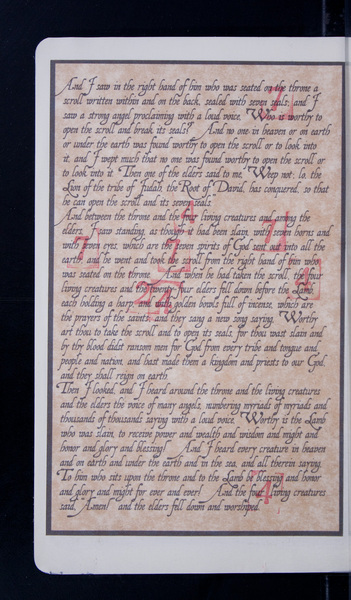 And I saw in the right hand of him who was seated on the throne a
scroll written within and on the back, sealed with seven seals; and I
saw a strong angel proclaiming with a loud voice, Who is worthy to
open the scroll and break its seals? And no one in heaven or on earth
or under the earth was found worthy to open the scroll or to look into
it, and I wept much that no one was found worthy to open the scroll or
to look into it. Then one of the elders said to me, Weep not; lo, the
Lion of the tribe of Judah, the Root of David, has conquered, so that
he can open the scroll and its seven seals.
And between the throne and the four living creatures and among the
elders, I saw standing, as though it had been slain, with seven horns and
with seven eyes, which are the seven spirits of God sent out into all the
earth; and he went and took the scroll from the right hand of him who
was seated on the throne. And when he had taken the scroll, the four
living creatures and the twenty-four elders fell down before the Lamb,
each holding a harp, and with golden bowls full of incense, which are
the prayers of the saints; and they sang a new song saying, Worthy
art thou to take the scroll and to open its seals, for thou wast slain and
by thy blood didst ransom men for God from every tribe and tongue and
people and nation, and hast made them a kingdom and priests to our God,
and they shall reign on earth.
Then I looked, and I heard around the throne and the living creatures
and the elders the voice of many angels, numbering myriads of myriads and
thousands of thousands, saying with a loud voice, Worthy is the Lamb
who was slain, to receive power and wealth and wisdom and might and
honor and glory and blessing! And I heard every creature in heaven
and on earth and under the earth and in the sea, and all therein, saying,
To him who sits upon the throne and to the Lamb be blessing and honor
and glory and might for ever and ever! And the four living creatures
said, Amen! and the elders fell down and worshiped.
7
4
7
7
7
4
24
4